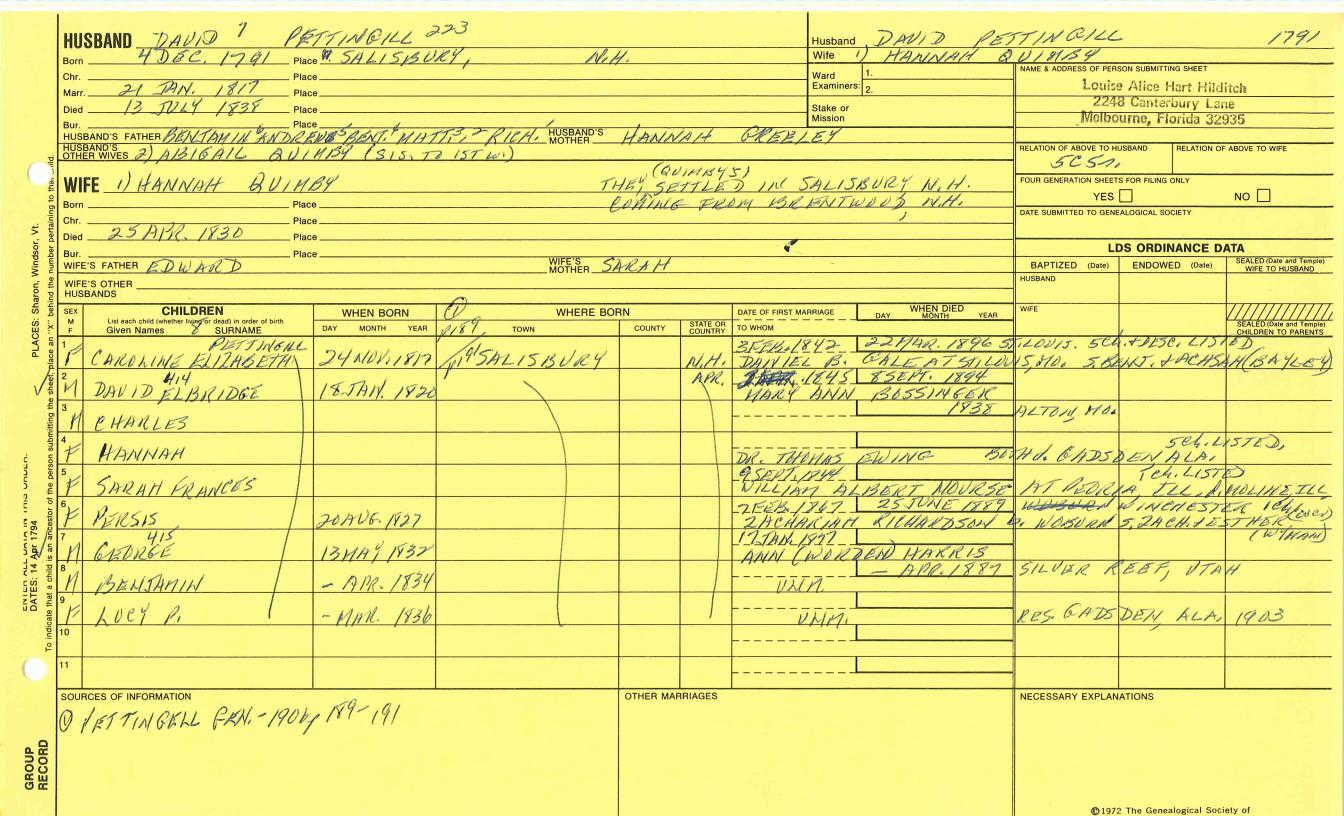 HUSBAND DAVID 7 PETTINGILL 223
Born 4 DEC. 1791 Place W. SALISBURY, N.H.
Chr. Place
Marr. 21 JAN. 1817 Place
Died 13 JULY 1838 Place
Bur. Place
HUSBAND'S FATHER BENJAMIN 6 ANDREW 5 BENJ. 4 MATT. 3, 2 RICH. 1 HUSBAND'S MOTHER HANNAH GREELEY
HUSBAND'S OTHER WIVES 2) ABIGAIL QUIMBY (SIS. TO 1ST W.)
Husband DAVID PETTINGILL 1791
Wife 1) HANNAH QUIMBY
Ward Examiners: 1.
2.
Stake or Mission
NAME & ADDRESS OF PERSON SUBMITTING SHEET
Louise Alice Hart Hilditch
2248 Canterbury Lane
Melbourne, Florida 32935
RELATION OF ABOVE TO HUSBAND RELATION OF ABOVE TO WIFE
5C5r.
FOUR GENERATION SHEETS FOR FILING ONLY
YES NO
DATE SUBMITTED TO GENEALOGICAL SOCIETY
WIFE 1) HANNAH QUIMBY
(QUIMBYS)
THEY SETTLED IN SALISBURY N.H.
COMING FROM BRENTWOOD, N.H.
Born Place
Chr. Place
Died 25 APR. 1830 Place
Bur. Place
WIFE'S FATHER EDWARD WIFE'S MOTHER SARAH
WIFE'S OTHER HUSBANDS
LDS ORDINANCE DATA
BAPTIZED (Date) ENDOWED (Date) SEALED (Date and Temple) WIFE TO HUSBAND
HUSBAND
WIFE
SEALED (Date and Temple) CHILDREN TO PARENTS
SEX M F
CHILDREN
List each child (whether living or dead) in order of birth
Given Names 8 SURNAME
WHEN BORN
DAY MONTH YEAR
WHERE BORN
① p189,
TOWN COUNTY STATE OR COUNTRY
DATE OF FIRST MARRIAGE
TO WHOM
WHEN DIED
DAY MONTH YEAR
PETTINGILL
1 F CAROLINE ELIZABETH 24 NOV. 1817 SALISBURY N.H. 3 FEB. 1842 22 MAR. 1896 ST. LOUIS. 5 ch. & DESC. LISTED
DANIEL B. GALE AT ST. LOUIS, MO. S. BENJ. & ACHSAH (BAYLEY)
2 M DAVID 414 ELBRIDGE 18 JAN. 1820 APR. 1845 8 SEPT. 1894
MARY ANN BOSSINGER
3 M CHARLES 1838 ALTON, MO.
4 F HANNAH DR. THOMAS EWING BOTH d. GADSDEN ALA. 5 ch. LISTED,
5 F SARAH FRANCES 9 SEPT. 1844 1 ch. LISTED
WILLIAM ALBERT NOURSE AT PEORIA, ILL, MOLINE, ILL
6 F PERSIS 20 AUG. 1827 7 FEB. 1867 25 JUNE 1889 WINCHESTER
ZACHARIAH RICHARDSON b. WOBURN S. ZACH. & ESTHER (WYMAN)
7 M GEORGE 415 13 MAY 1832 17 JAN. 1897
ANN (WORDEN) HARRIS
8 M BENJAMIN – APR. 1834 UNM. – APR. 1887 SILVER REEF, UTAH
9 F LUCY P. – MAR. 1836 UNM. RES. GADSDEN, ALA. 1903
10
11
SOURCES OF INFORMATION
① PETTINGELL GEN. – 1906 p 189-191
OTHER MARRIAGES
NECESSARY EXPLANATIONS
©1972 The Genealogical Society of
PLACES: Sharon, Windsor, Vt.
ENTER ALL DATA IN THIS ORDER:
DATES: 14 Apr 1794
To indicate that a child is an ancestor of the person submitting the sheet, place an "X" behind the number pertaining to that child.
GROUP RECORD